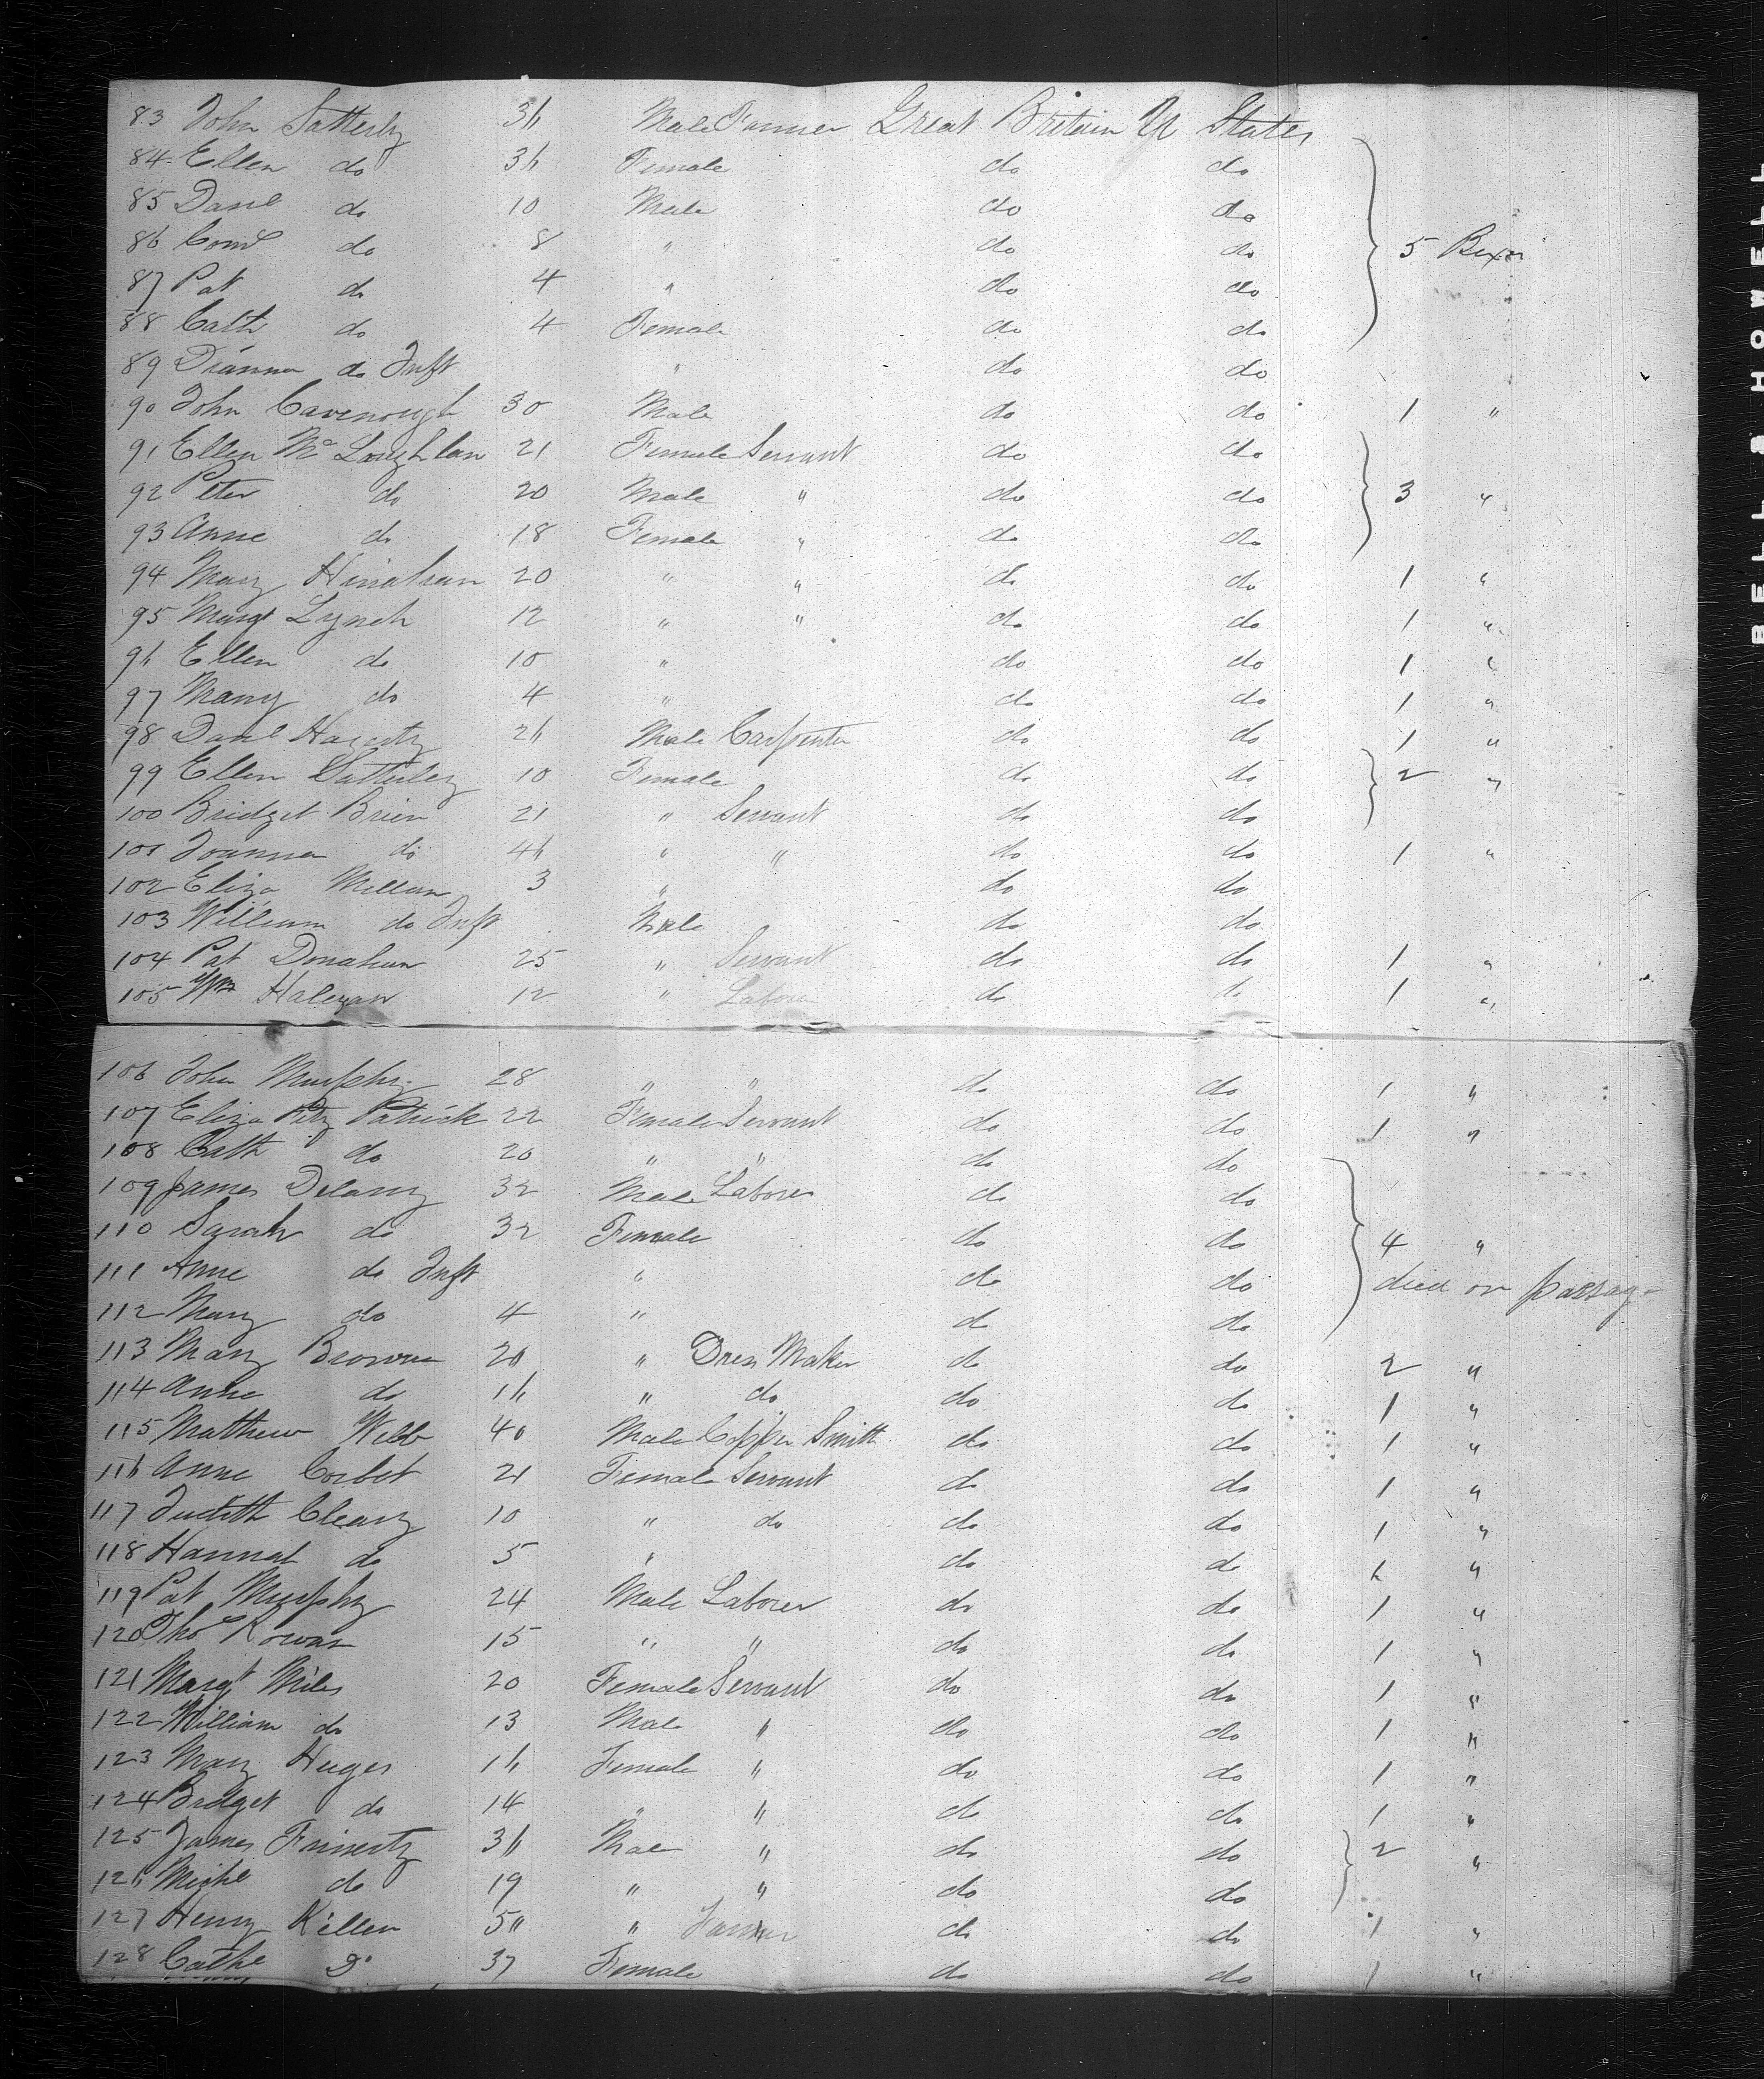 83 John Satterly 36 Male Farmer Great Britain U States
84 Ellen do 36 Female do do
85 Danl do 10 Male do do
86 Cornl do 8 " do do 5 Boxes
87 Pat do 4 " do do
88 Cath do 4 Female do do
89 Dianna do Inft " do do
90 John Cavenough 30 Male do do 1 "
91 Ellen Mc Loughlan 21 Female Servant do do
92 Peter do 20 Male " do do 3 "
93 Anne do 18 Female " do do
94 Mary Hinahan 20 " " do do 1 "
95 Margt Lynch 12 " " do do 1 "
96 Ellen do 10 " do do 1 "
97 Mary do 4 " do do 1 "
98 Danl Hagerty 26 Male Carpenter do do 1 "
99 Ellen Satterley 10 Female do do 2 "
100 Bridget Brien 21 " Servant do do
101 Joanna do 46 " " do do 1 "
102 Eliza 3 " do do
103 William do Inft Male do do
104 Pat Donahue 25 " Servant do do 1 "
105 Wm 12 " Labore do do 1 "
106 John Murphy 28 " " do do 1 "
107 Eliza Fitz Patrick 22 Female Servant do do 1 "
108 Cath do 20 " " do do
109 James Delany 32 Male Laborer do do
110 Sarah do 32 Female do do 4 "
111 Anne do Inft " do do died on passage
112 Mary do 4 " do do
113 Mary Browne 20 " Dress Maker do do 2 "
114 Anne do 16 " do do do 1 "
115 Mathew Webb 40 Male Copper Smith do do 1 "
116 Anne Corbet 21 Female Servant do do 1 "
117 Judith Cleary 10 " do do do 1 "
118 Hannah do 5 " do do "
119 Pat Murphy 24 Male Laborer do do 1 "
120 Tho Rowan 15 " " do do 1 "
121 Margt Miles 20 Female Servant do do 1 "
122 William do 13 Male " do do 1 "
123 Mary Huges 16 Female " do do 1 "
124 Bridget do 14 " " do do 1 "
125 James Finnerty 36 Male " do do 2 "
126 Michl do 19 " " do do
127 Henry Killen " Farmer do do 1 "
128 Cathe Do 37 Female do do 1 "
BELL & HOWELL